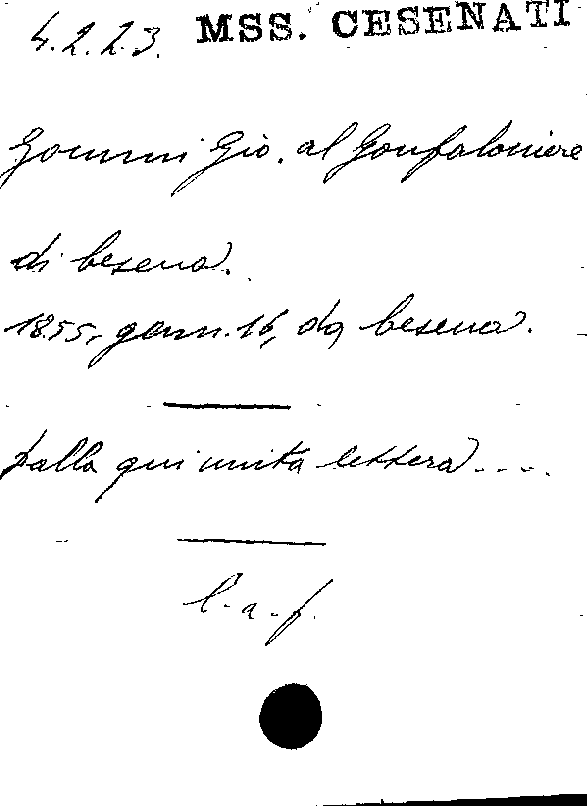 4.2.2.3. MSS. CESENATI
Gommi Gio. al Gonfaloniere
di Cesena.
1855, genn. 16, da Cesena.
Dalla qui unita lettera....
l.a.f.